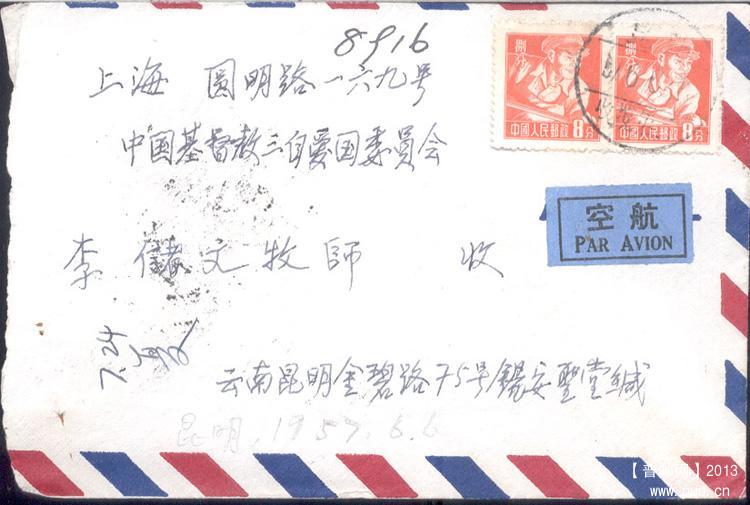 8916
捌分 捌分
中國人民郵政 8分 中國人民郵政 8分
上海 圆明路一六九号
中国基督教三自爱国委員会
空航
PAR AVION
李储文牧師 收
7.24
云南昆明金碧路75号锡安聖堂缄
昆明.1957.6.6
2013